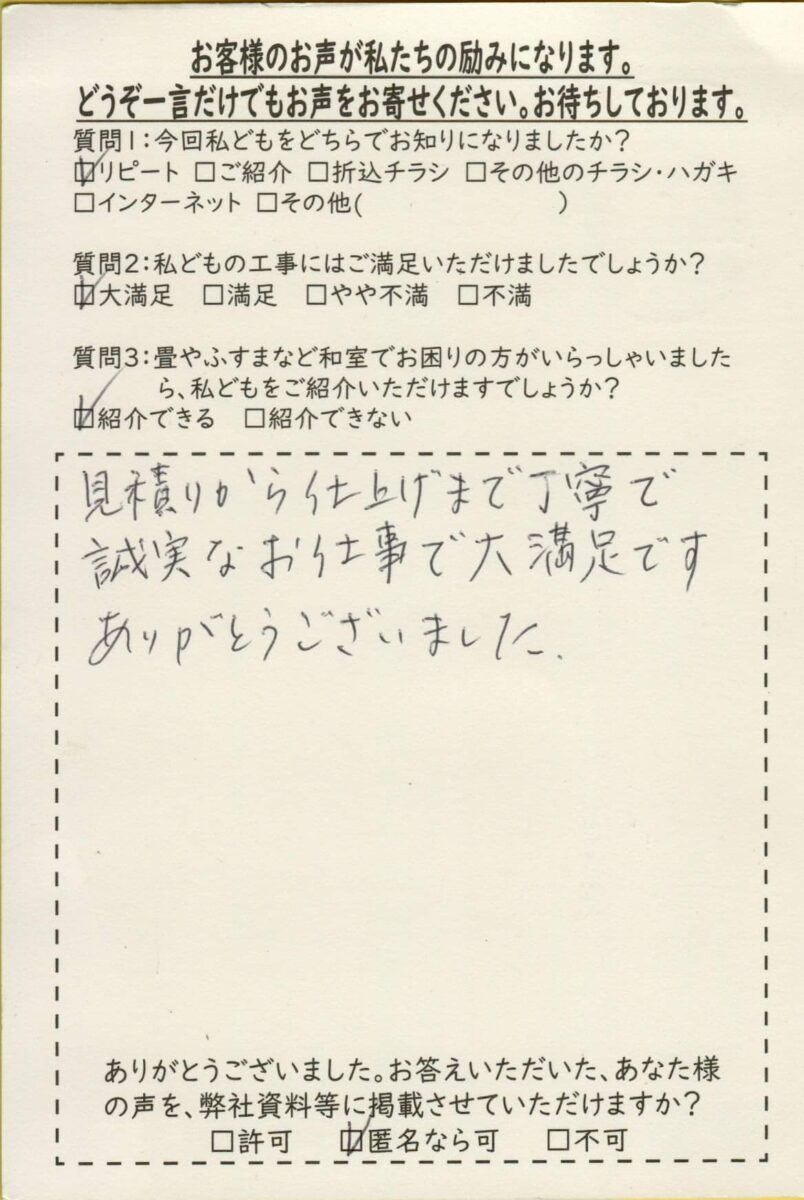 お客様のお声が私たちの励みになります。
どうぞ一言だけでもお声をお寄せください。お待ちしております。
質問1:今回私どもをどちらでお知りになりましたか?
☑リピート □ご紹介 □折込チラシ □その他のチラシ・ハガキ
□インターネット □その他( )
質問2:私どもの工事にはご満足いただけましたでしょうか?
☑大満足 □満足 □やや不満 □不満
質問3:畳やふすまなど和室でお困りの方がいらっしゃいました
ら、私どもをご紹介いただけますでしょうか?
☑紹介できる □紹介できない
見積りから仕上げまで丁寧で
誠実なお仕事で大満足です
ありがとうございました.
ありがとうございました。お答えいただいた、あなた様
の声を、弊社資料等に掲載させていただけますか?
□許可 ☑匿名なら可 □不可